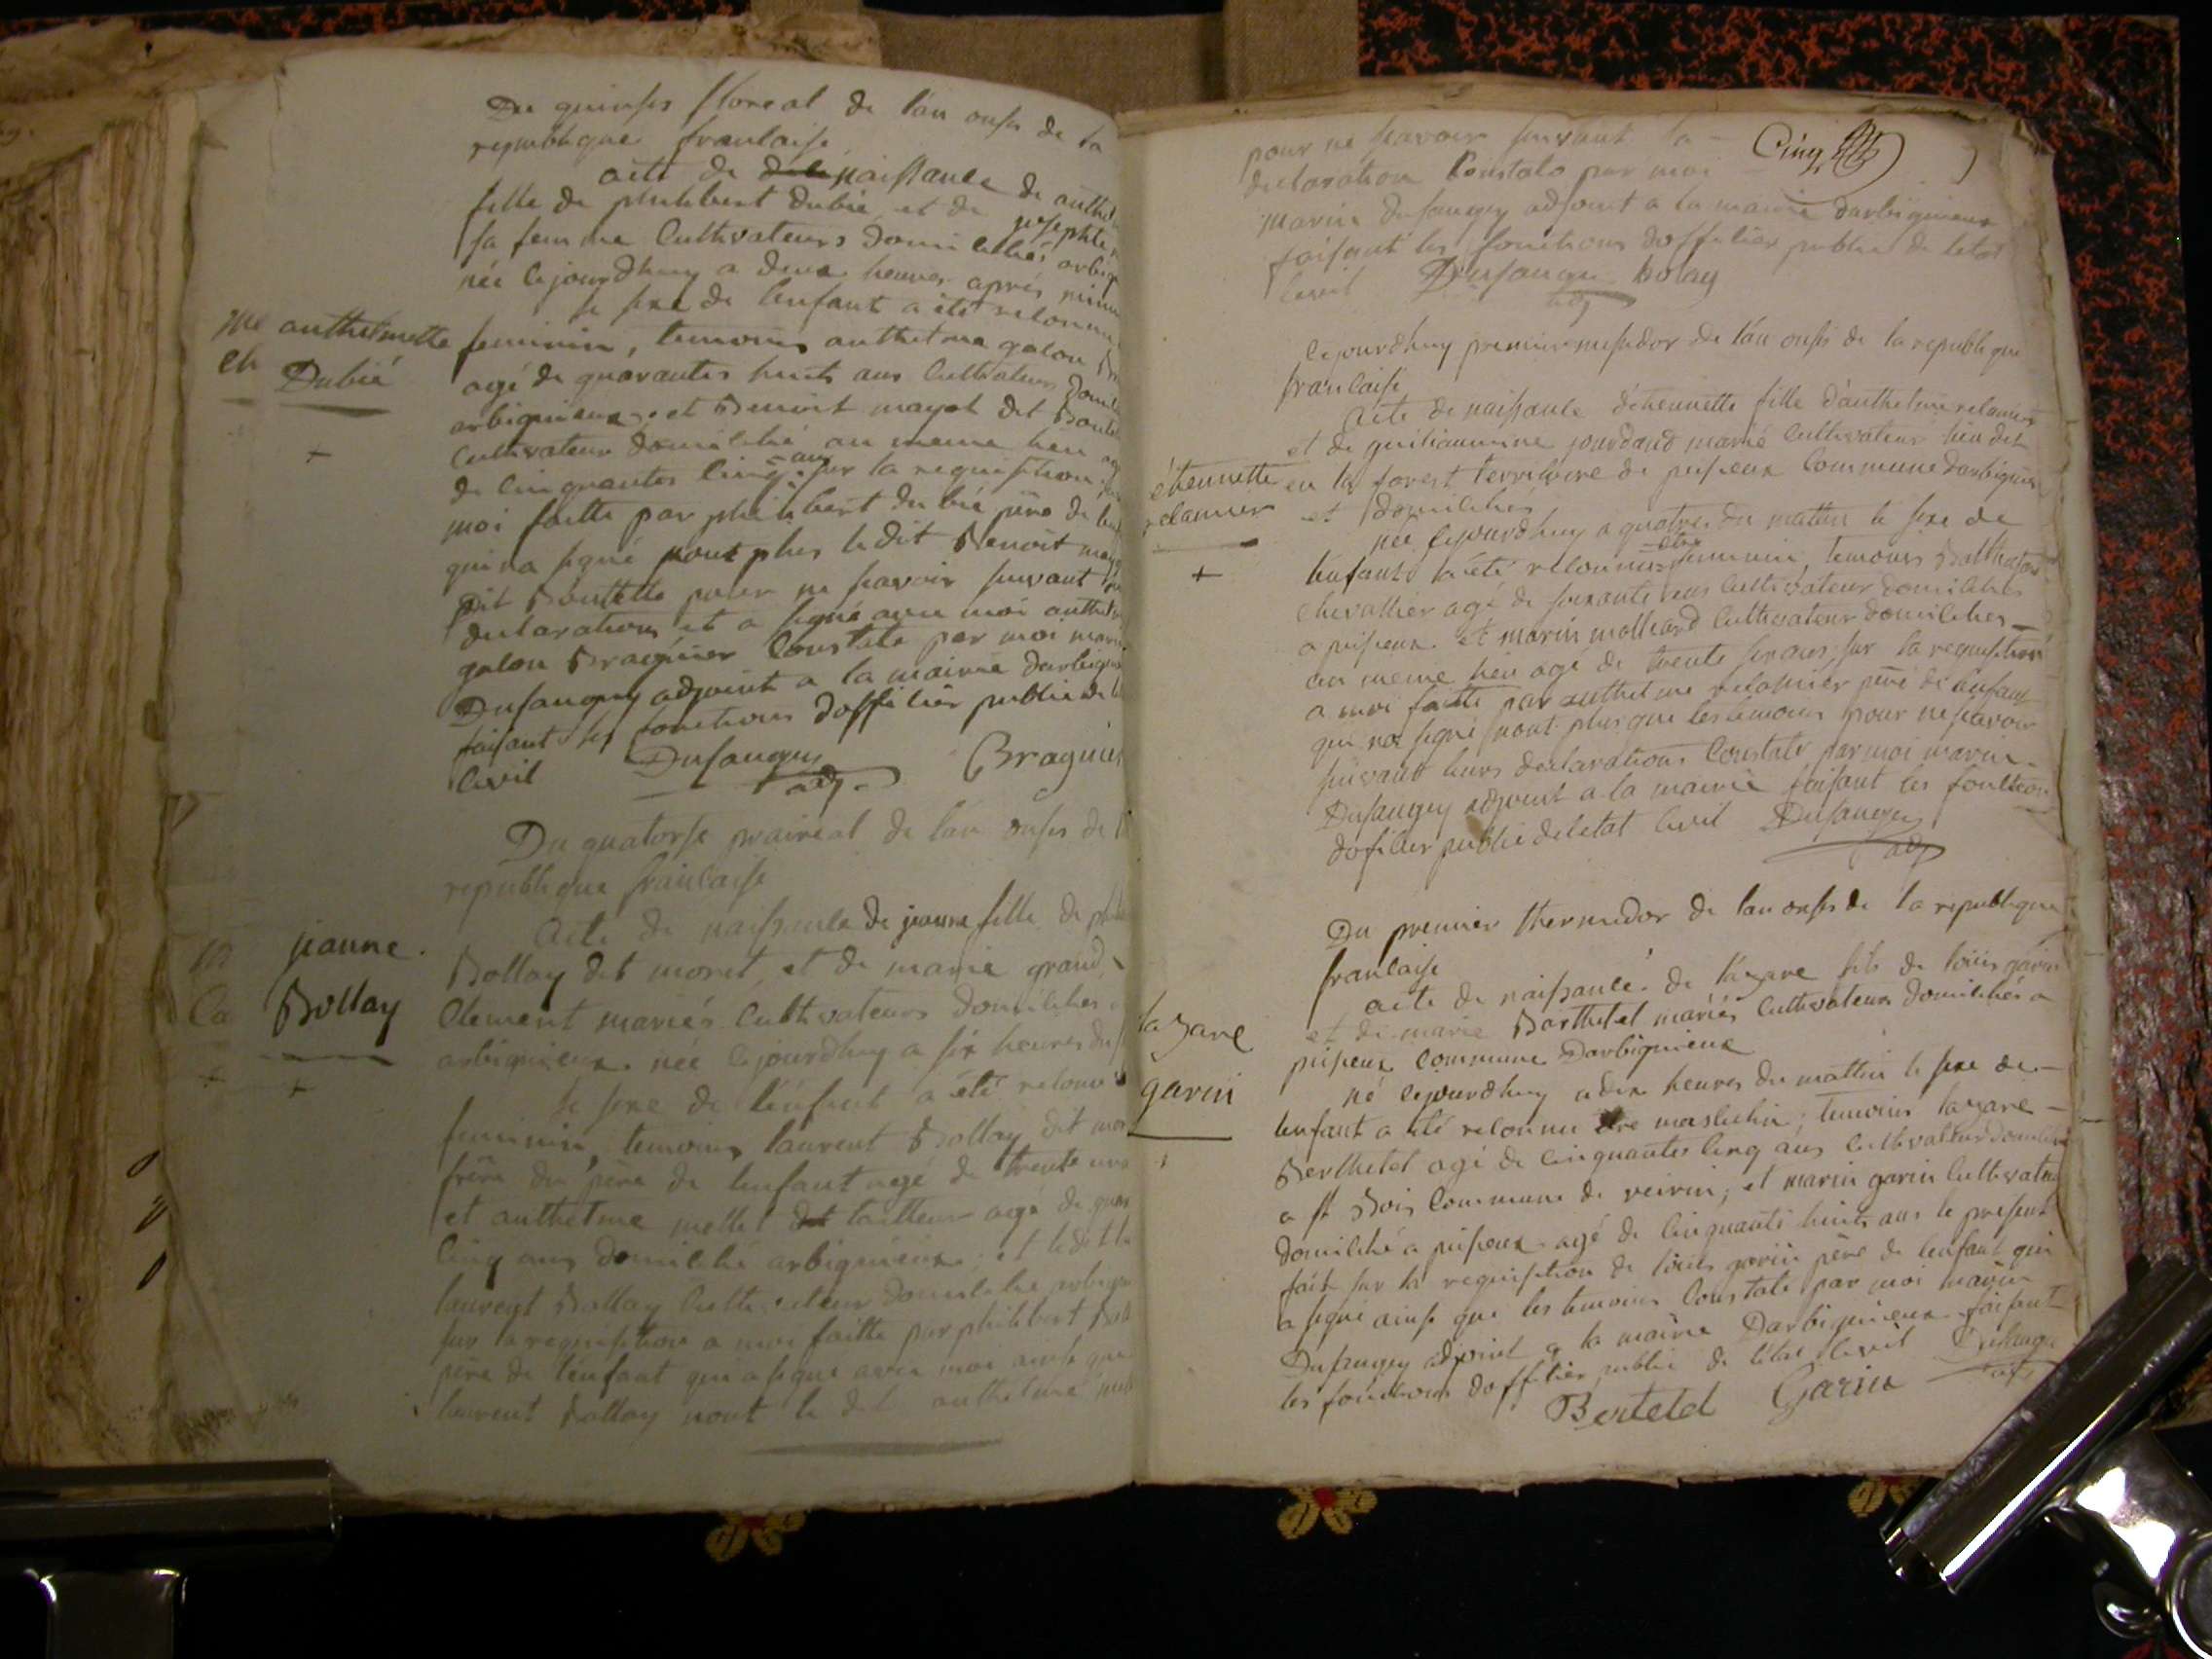 Du quinses floreal de lan onses de la
republique francaise
acte de naissance de anthel
fille de philibert dubié et de josephte
sa femme Cultivateurs domiciliés arbig
née cejourdhuy a deux heures après minu
le sexe de lenfant a été reconnu
me anthelmette
Dubié
feminin, temoins anthelme galon
agé de quarantes huits ans Cultivateur domi
arbignieux, et Benoit mayot dit Boute
Cultivateur domicilié au meme lieu
de cinquantes cinq ans sur la requisition
moi faitte par philibert dubié père de
qui na signé nont plus ledit Benoit may
dit Boutette pour ne scavoir suivant
declarations et a signé avec moi anthel
galon Braguier Constaté par moi marin
Dufaugey adjoint a la mairie darbign
faisant les fonctions dofficier public de
civil Dufaugey adj. Braguier
Du quatorse praireal de lan onses de
republique francaise
Acte de naissance de jeanne fille de
jeanne
Bollay
Bollay dit moret, et de marie grand
Clement mariés Cultivateurs domiciliés
arbignieux. née cejourdhuy a six heures du
le sexe de lénfant a été reconu
feminin, temoins laurent Bollay dit mor
frère du père de lenfant agé de trente
et anthelme mollet tailleur agé de quar
cinq ans domicilié arbignieux, et ledit
laurent Bollay Cultivateur domicilié arbign
sur la requisition a moi faitte par philibert Bol
père de lénfant qui a signé avec moi ainsi que
laurent Bollay nont le dit anthelme
pour ne scavoir suivant la Cinq
declaration Constate par moi
marin dufaugey adjoint a la mairie darbignieux
faisant les fonctions dofficier public de letat
civil Dufaugey adj bolay
Cejourdhuy premier messidor de lan onses de la republique
francaise
Acte de naissance détiennette fille danthelme relanier
et de guiliaumine jourdand marié Cultivateur lieu dit
étiennette
relanier
en la forest territoire de pesieux Commune darbignieux
et domiciliés
née cejourdhuy a quatres du mattin le sexe de
lenfant a été reconnu etre feminin, temoins Balthazard
chevallier agé de soixante ans cultivateur domiciliés
a pesieux et marin molliard Cultivateur domicilies
au meme lieu agé de trente six ans, sur la requisition
a moi faitte par anthelme relanier père de lenfant
qui na signé nont plus que les temoins pour ne scavoir
suivant leurs declarations Constaté par moi marin
Dufaugey adjoint a la mairie faisant les fonctions
doficier public de letat civil Dufaugey
adj
Du premier thermidor de lan onses de la republique
francaise
acte de naissance de lazare fils de louis garin
et de marie Barthelet mariés Cultivateurs domiciliés a
lazare
garin
pesieux Commune Darbignieux
né cejourdhuy a dix heures du mattin le sexe de
lenfant a été reconnu etre masculin, temoins lazare
Berthelet agé de cinquantes cinq ans Cultivateur domicilié
a st Bois Commune de veirin, et marin garin Cultivateur
domicilié a pesieux agé de cinquante huits ans le present
fait sur la requisition de louis garin père de lenfant qui
a signé ainsi que les temoins Constaté par moi marin
Dufaugey adjoint a la mairie Darbignieux faisant
les fonctions dofficier public de létat civil Dufaugey
Bertelel Garin adj